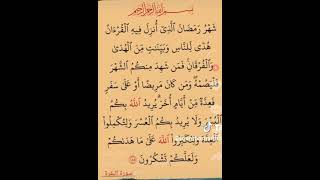 بسم الله الرحمن الرحيم
شَهْرُ رَمَضَانَ الَّذِي أُنزِلَ فِيهِ الْقُرْءَانُ
هُدًى لِّلنَّاسِ وَبَيِّنَاتٍ مِّنَ الْهُدَىٰ
وَالْفُرْقَانِ فَمَن شَهِدَ مِنكُمُ الشَّهْرَ
فَلْيَصُمْهُ وَمَن كَانَ مَرِيضًا أَوْ عَلَىٰ سَفَرٍ
فَعِدَّةٌ مِّنْ أَيَّامٍ أُخَرَ يُرِيدُ اللَّهُ بِكُمُ
الْيُسْرَ وَلَا يُرِيدُ بِكُمُ الْعُسْرَ وَلِتُكْمِلُوا
الْعِدَّةَ وَلِتُكَبِّرُوا اللَّهَ عَلَىٰ مَا هَدَىٰكُمْ
وَلَعَلَّكُمْ تَشْكُرُونَ
سورة البقرة